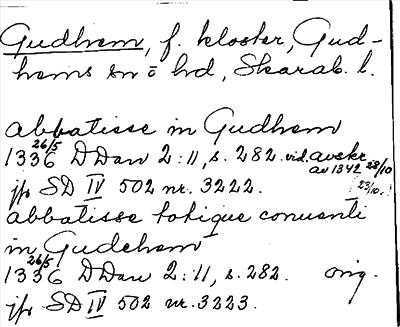 Gudhem, f. kloster, Gud-
hems sn o hd, Skarab. l.
abbatisse in Gudhem
1336 26/5 DDan 2:11, s. 282. vid. avskr. av 1342 23/10
jfr SD IV 502 nr. 3222. 23/10.
abbatisse totique conuenti
in Gudehem
1336 26/5 DDan 2:11, s. 282. orig.
jfr SD IV 502 nr. 3223.